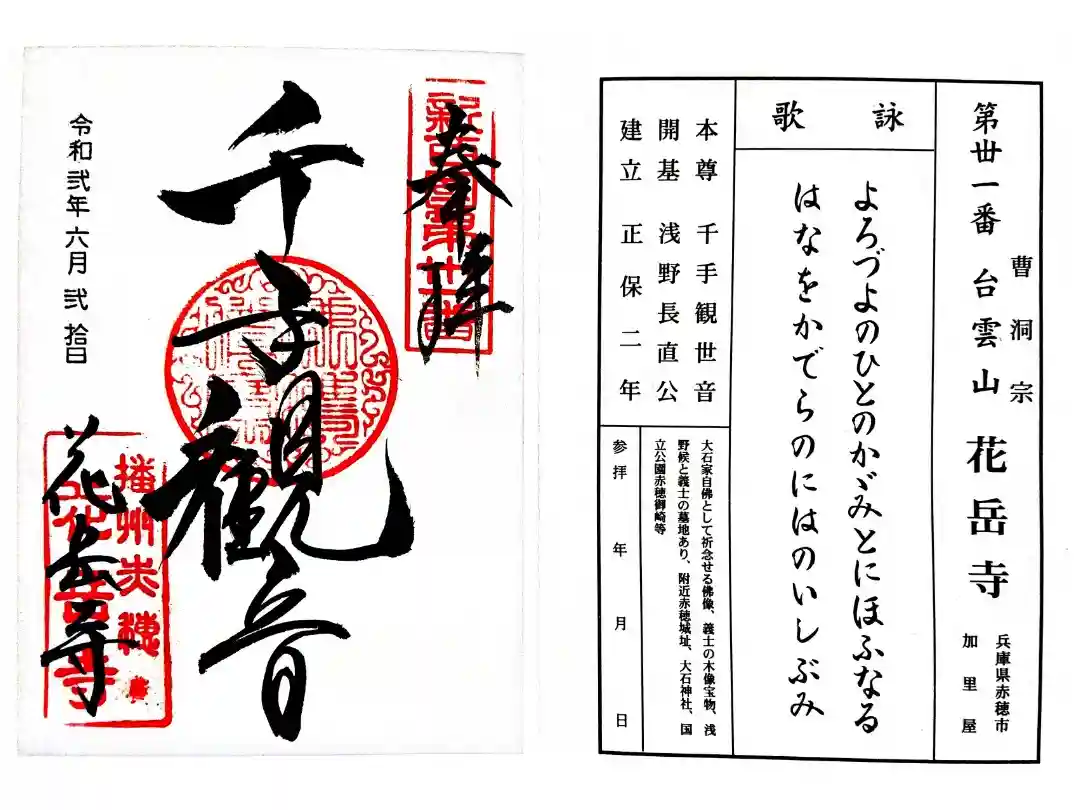 奉拝
千手観音
花岳寺
令和弐年六月弐拾日
播州赤穂
第丗一番 台雲山 花岳寺
曹洞宗
兵庫県赤穂市
加里屋
詠歌
よろづよのひとのかゞみとにほふなる
はなをかでらのにはのいしぶみ
本尊 千手観世音
開基 浅野長直公
建立 正保二年
大石家自佛として祈念せる佛像、義士の木像宝物、浅
野候と義士の墓地あり、附近赤穂城址、大石神社、国
立公園赤穂御崎等
参拝 年 月 日